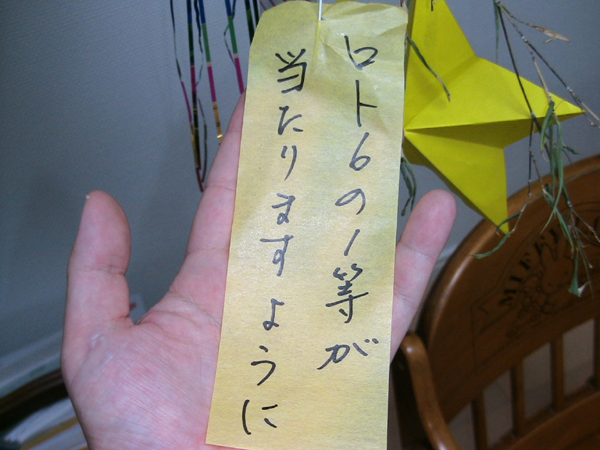 ロト6の1等が
当たりますように
MIFFY